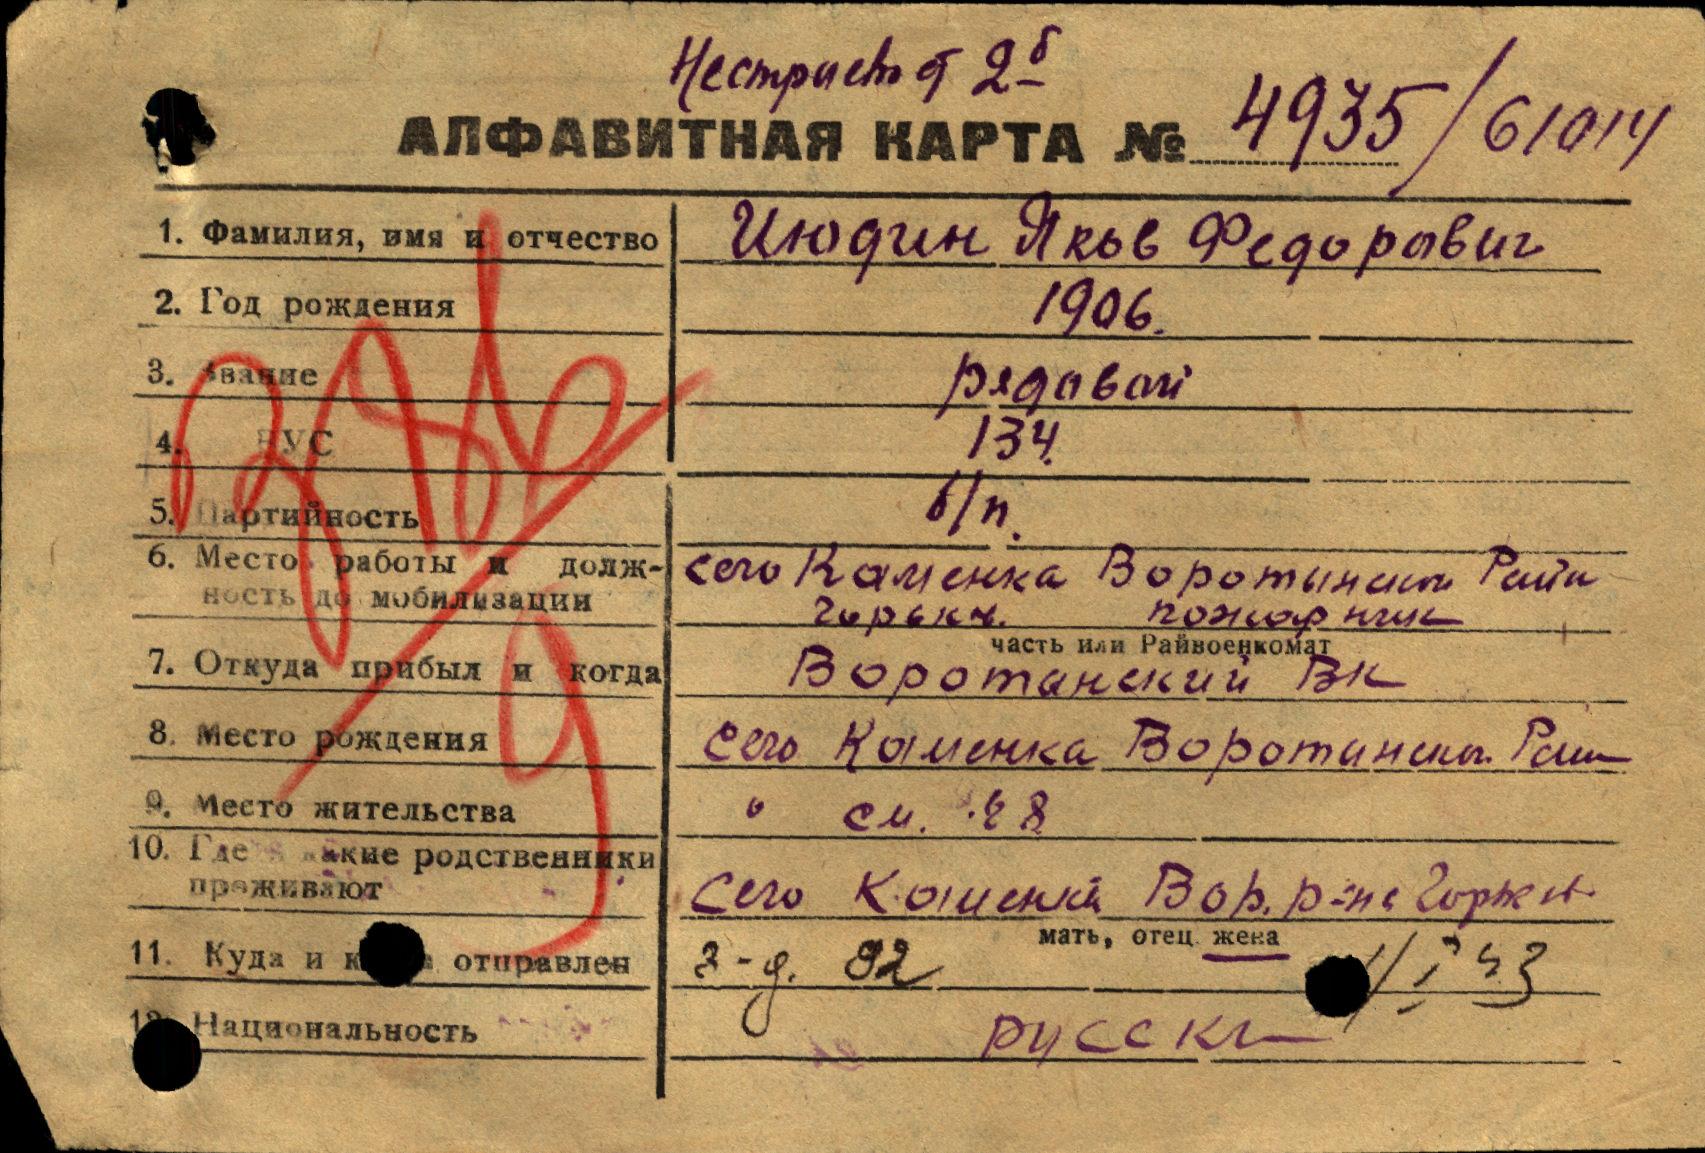 2б
АЛФАВИТНАЯ КАРТА № 4935/61014
1. Фамилия, имя и отчество Июдин Яков Федорывич
2. Год рождения 1906.
3. Звание рядавой
4. ВУС 134.
5. Партийность б/п.
6. Место работы и долж- село Каменка Воротынский
ность до мобилизации Горьк. пожарник
часть или Райвоенкомат
7. Откуда прибыл и когда Воротанский ВК
8. Место рождения Село Каменка
9. Место жительства " см. 8
10. Где и какие родственники
проживают Село Каменка Вор. р-на
мать, отец жена
11. Куда и когда отправлен 3-д. 92
12. Национальность русск